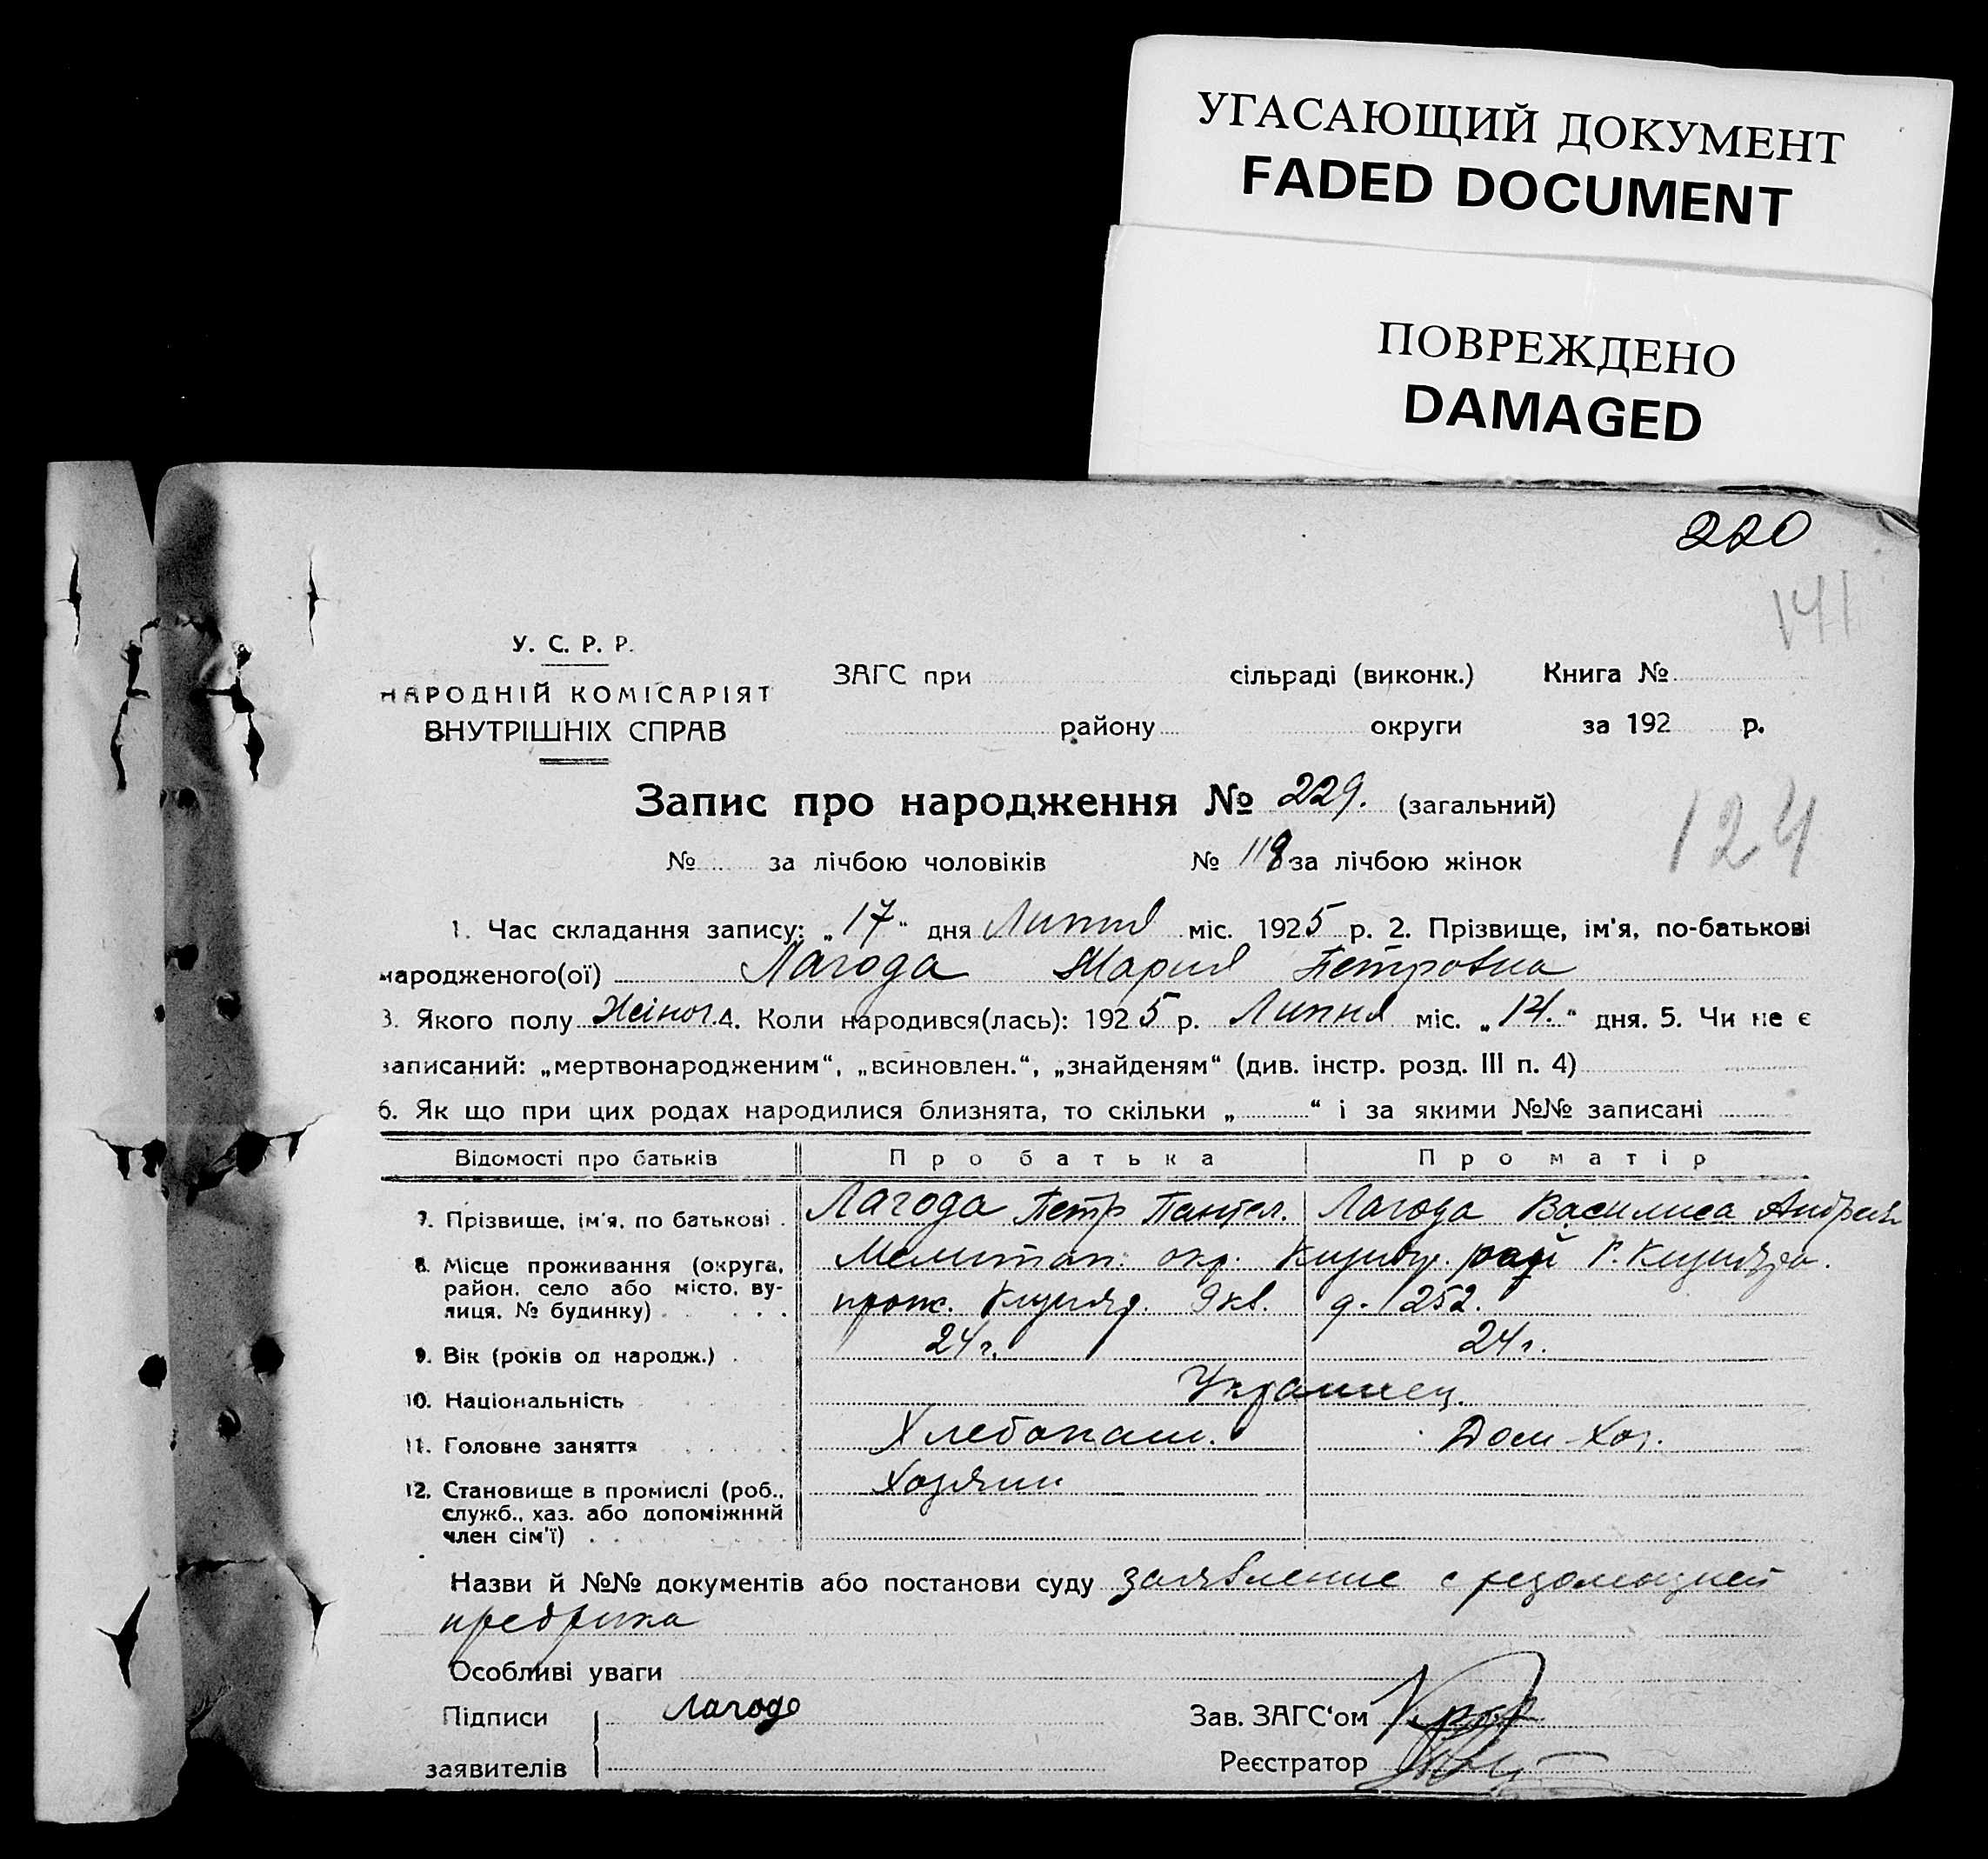 УГАСАЮЩИЙ ДОКУМЕНТ
FADED DOCUMENT
ПОВРЕЖДЕНО
DAMAGED
220
141
У. С. Р. Р.
НАРОДНІЙ КОМІСАРІЯТ
ВНУТРІШНІХ СПРАВ
ЗАГС при сільраді (виконк.) Книга №
району округи за 192 р.
Запис про народження № 229. (загальний)
124
№ за лічбою чоловіків № 118 за лічбою жінок
1. Час складання запису: „17“ дня Липня міс. 1925 р. 2. Прізвище, ім'я, по-батькові
народженого(ої) Лагода Мария Петровна
3. Якого полу Жіноч. 4. Коли народився(лась): 1925 р. Липня міс. „14.“ дня. 5. Чи не є
записаний: „мертвонародженим“, „всиновлен.“, „знайденям“ (див. інстр. розд. III п. 4)
6. Як що при цих родах народилися близнята, то скільки „ “ і за якими №№ записані
Відомості про батьків Про батька Про матір
7. Прізвище, ім'я, по батькові . Лагода Петр Пантел. Лагода Василиса Андреев
8. Місце проживання (округа, район, село або місто, вулиця, № будинку) . . . . Мелитоп. окр. Кизияр. рай с. Кизияра.
прож. Кизияр. 9 кв. д. 252.
9. Вік (років од народж.) . 24 г. 24 г.
10. Національність Украинец.
11. Головне заняття . . . . . Хлебопаш. Дом-хоз.
12. Становище в промислі (роб., Хозяин
служб., хаз. або допоміжний
член сім'ї) . . . . .
Назви й №№ документів або постанови суду заявление с резолюцией
предрика
Особливі уваги
Підписи Лагода Зав. ЗАГС'ом
заявителів Реєстратор